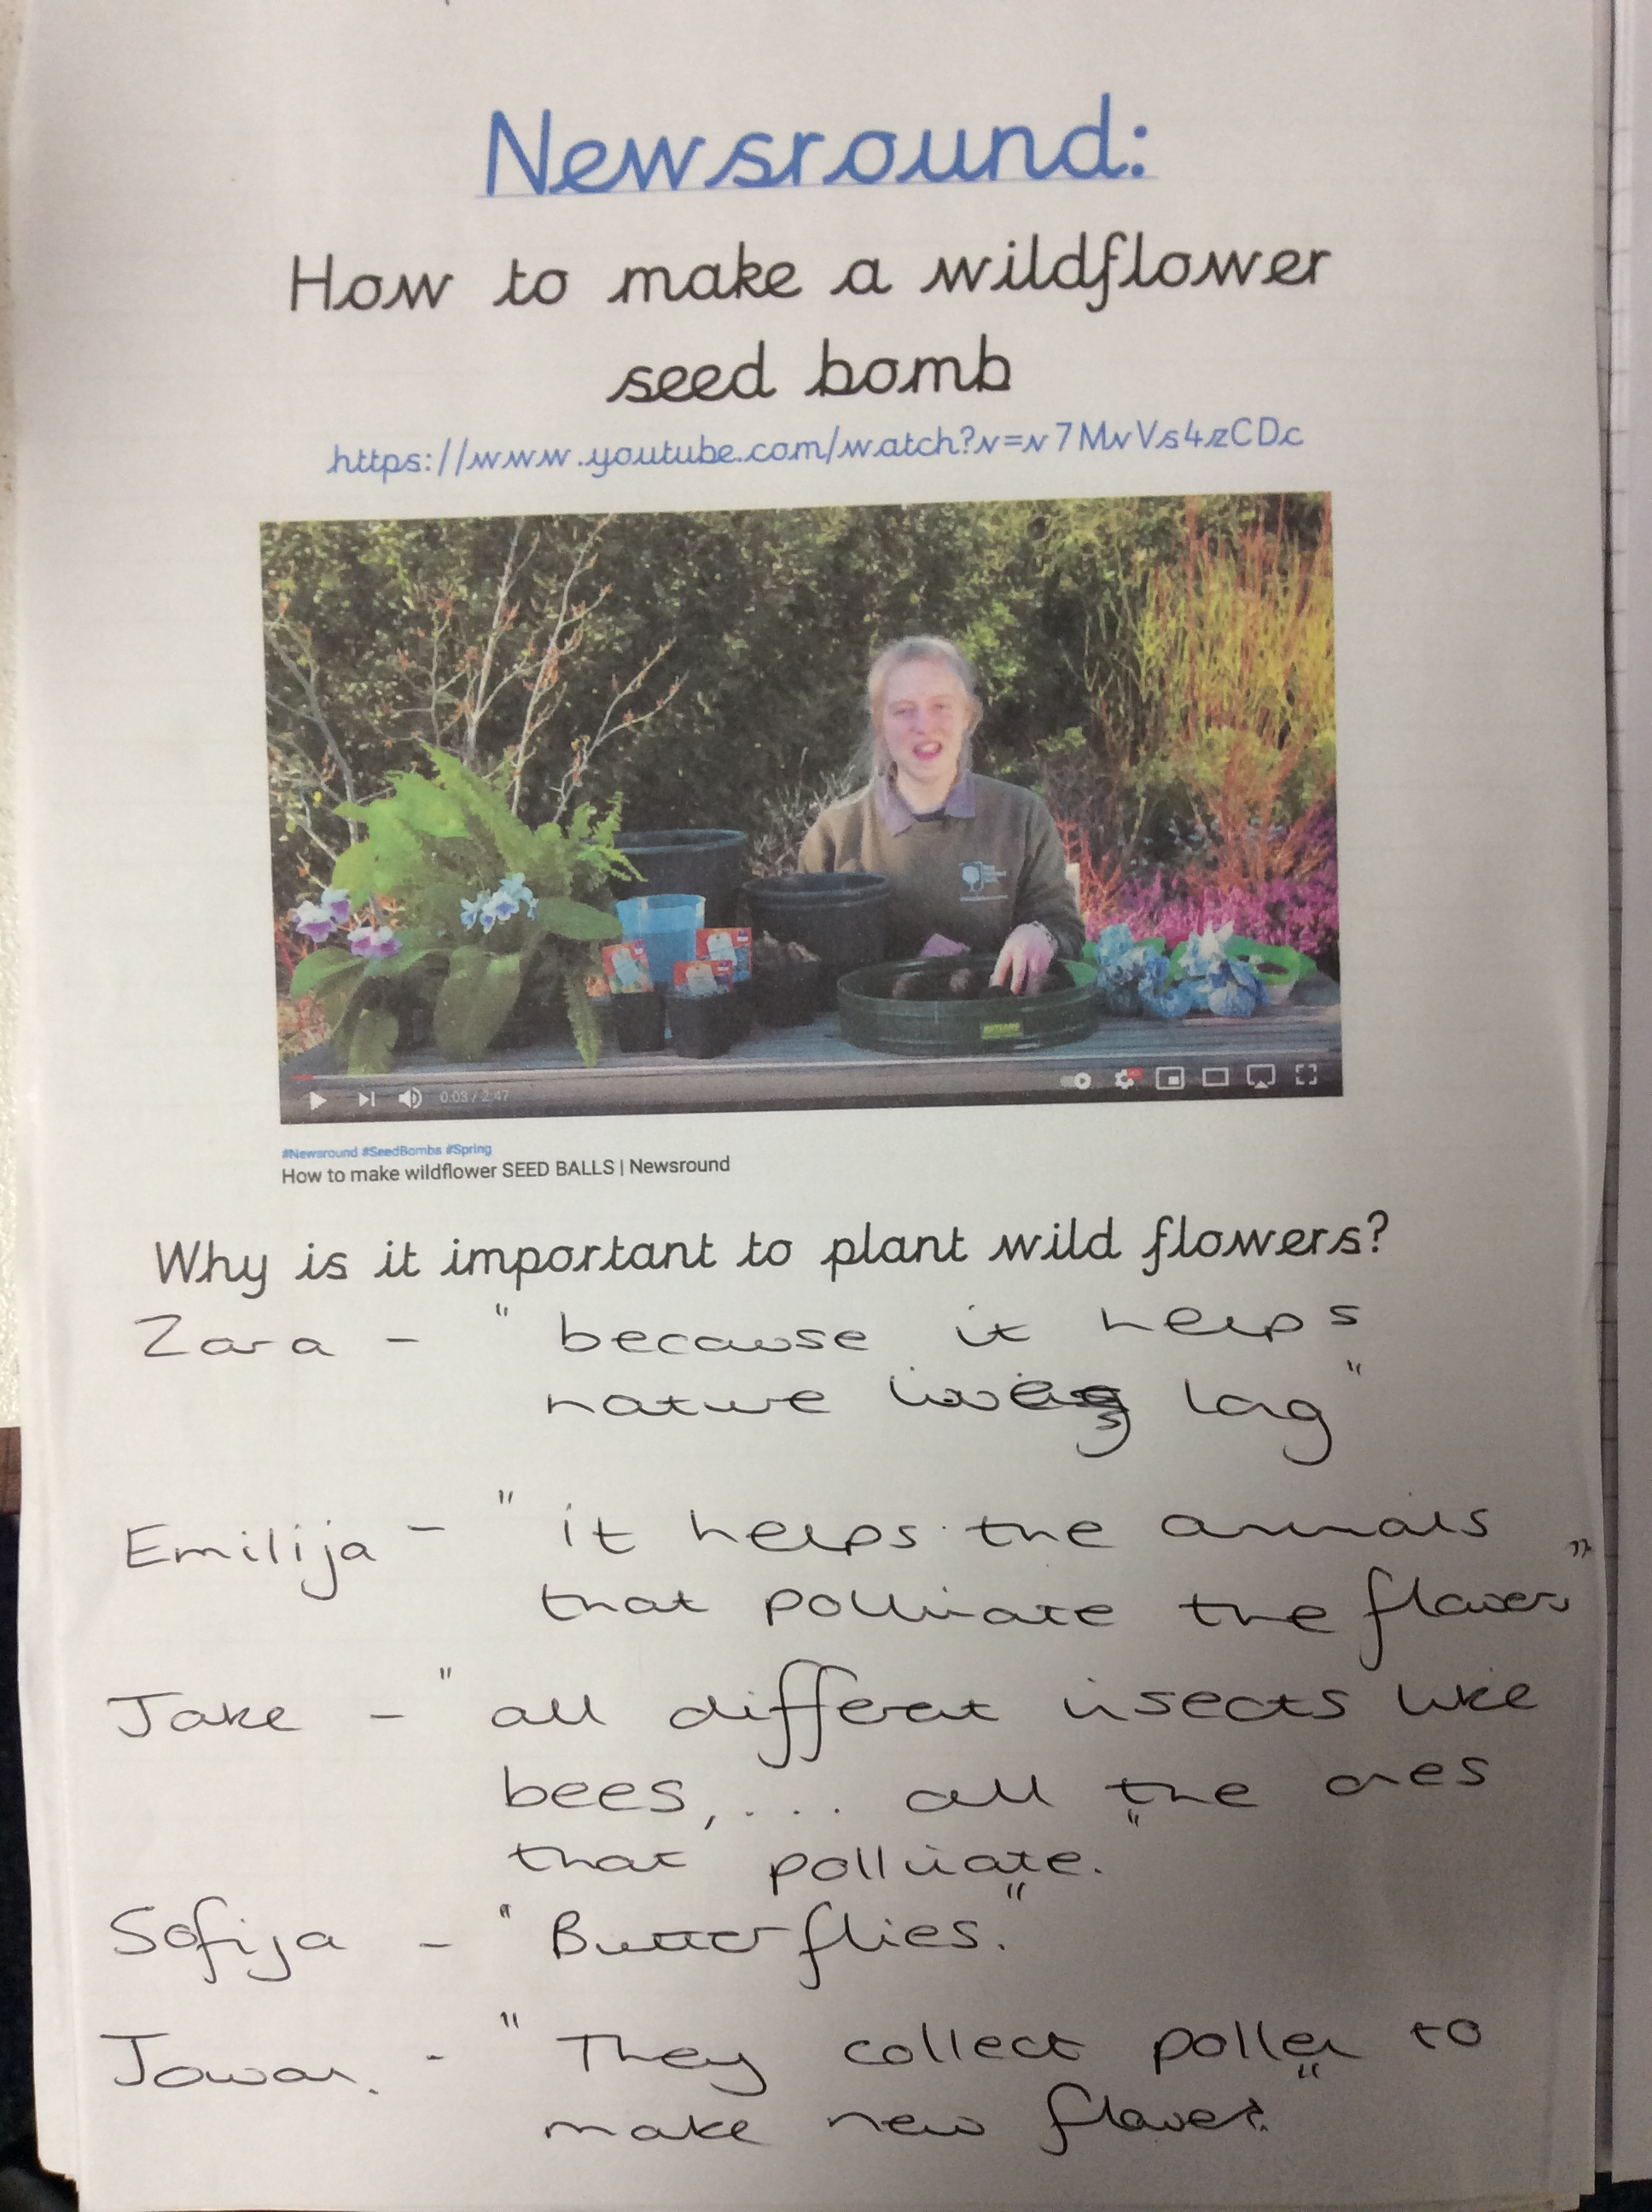 Newsround:
How to make a wildflower
seed bomb
https://www.youtube.com/watch?v=v7MvVs4zCDc
0:03 / 2:47
#Newsround #SeedBombs #Spring
How to make wildflower SEED BALLS | Newsround
Why is it important to plant wild flowers?
Zara - " because it helps
nature long "
Emilija - " it helps the animals
that pollinate the flowers "
Jake - " all different insects like
bees, ... all the ones
that pollinate. "
Sofija - " Butterflies. "
- " They collect pollen to
make new flowers. "